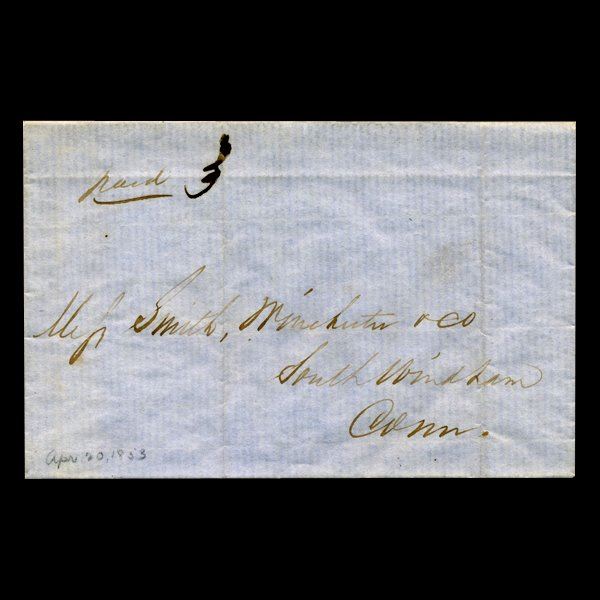 paid 3
Mess Smith, Winchester & co
South Windham
Conn.
Apr 20, 1853